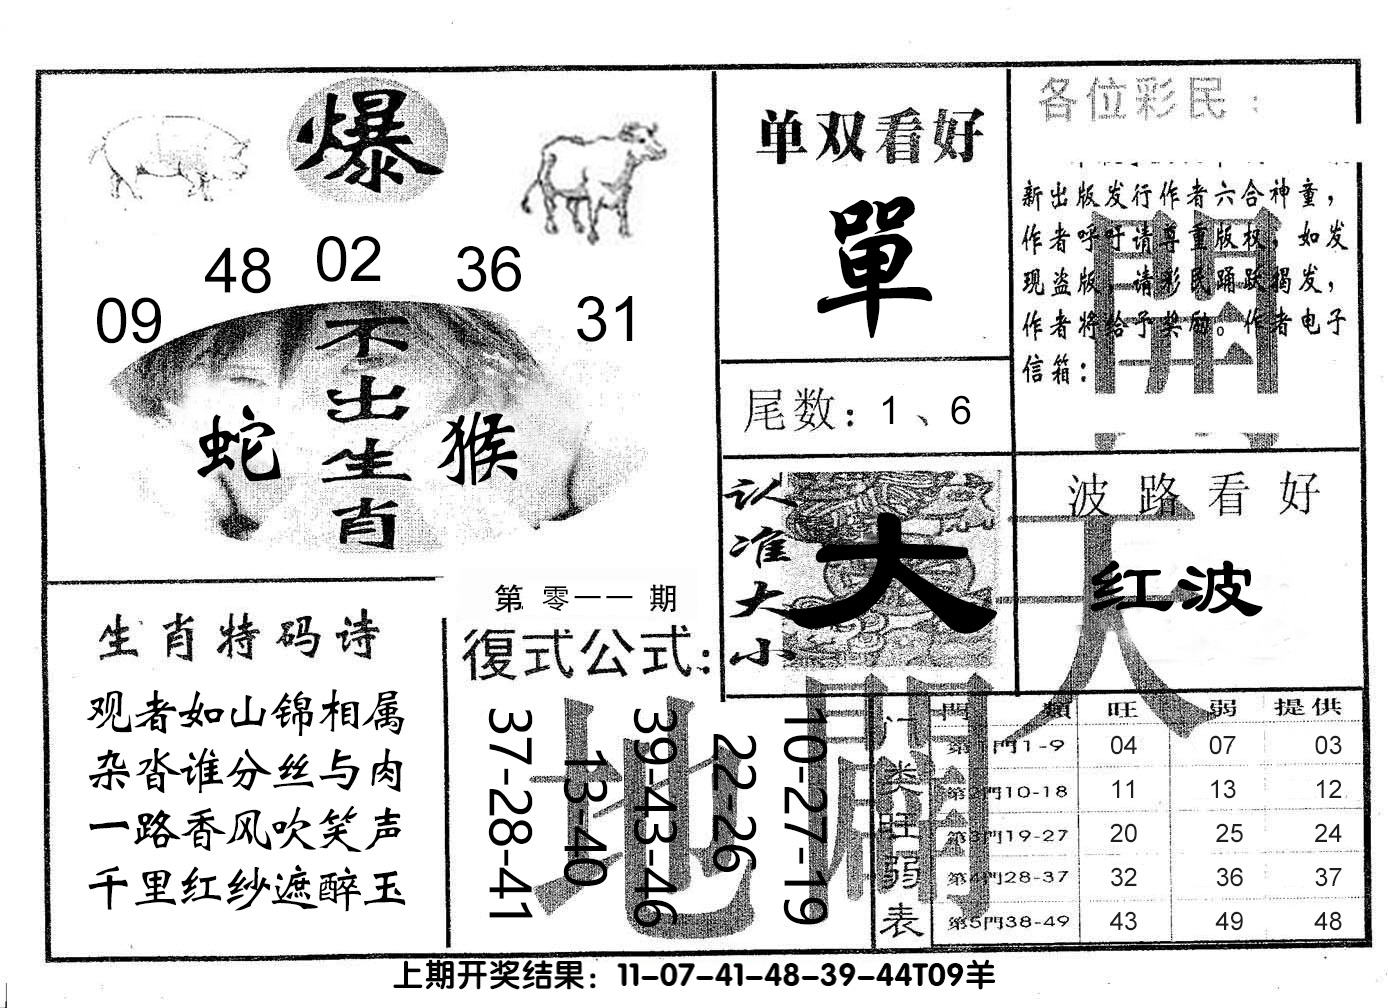 爆
09 48 02 36 31
不出生肖
蛇 猴
单双看好
單
尾数：1、6
认准大小
大
各位彩民：
新出版发行作者六合神童，
作者呼吁请尊重版权，如发
现盗版，请彩民踊跃揭发，
作者将给予奖励。作者电子
信箱：
波路看好
红波
生肖特码诗
观者如山锦相属
杂沓谁分丝与肉
一路香风吹笑声
千里红纱遮醉玉
第零一一期
復式公式：
37-28-41
13-40
39-43-46
22-26
10-27-19
天地
门类旺弱表
門類 旺 弱 提供
第1門1-9 04 07 03
第2門10-18 11 13 12
第3門19-27 20 25 24
第4門28-37 32 36 37
第5門38-49 43 49 48
上期开奖结果：11-07-41-48-39-44T09羊